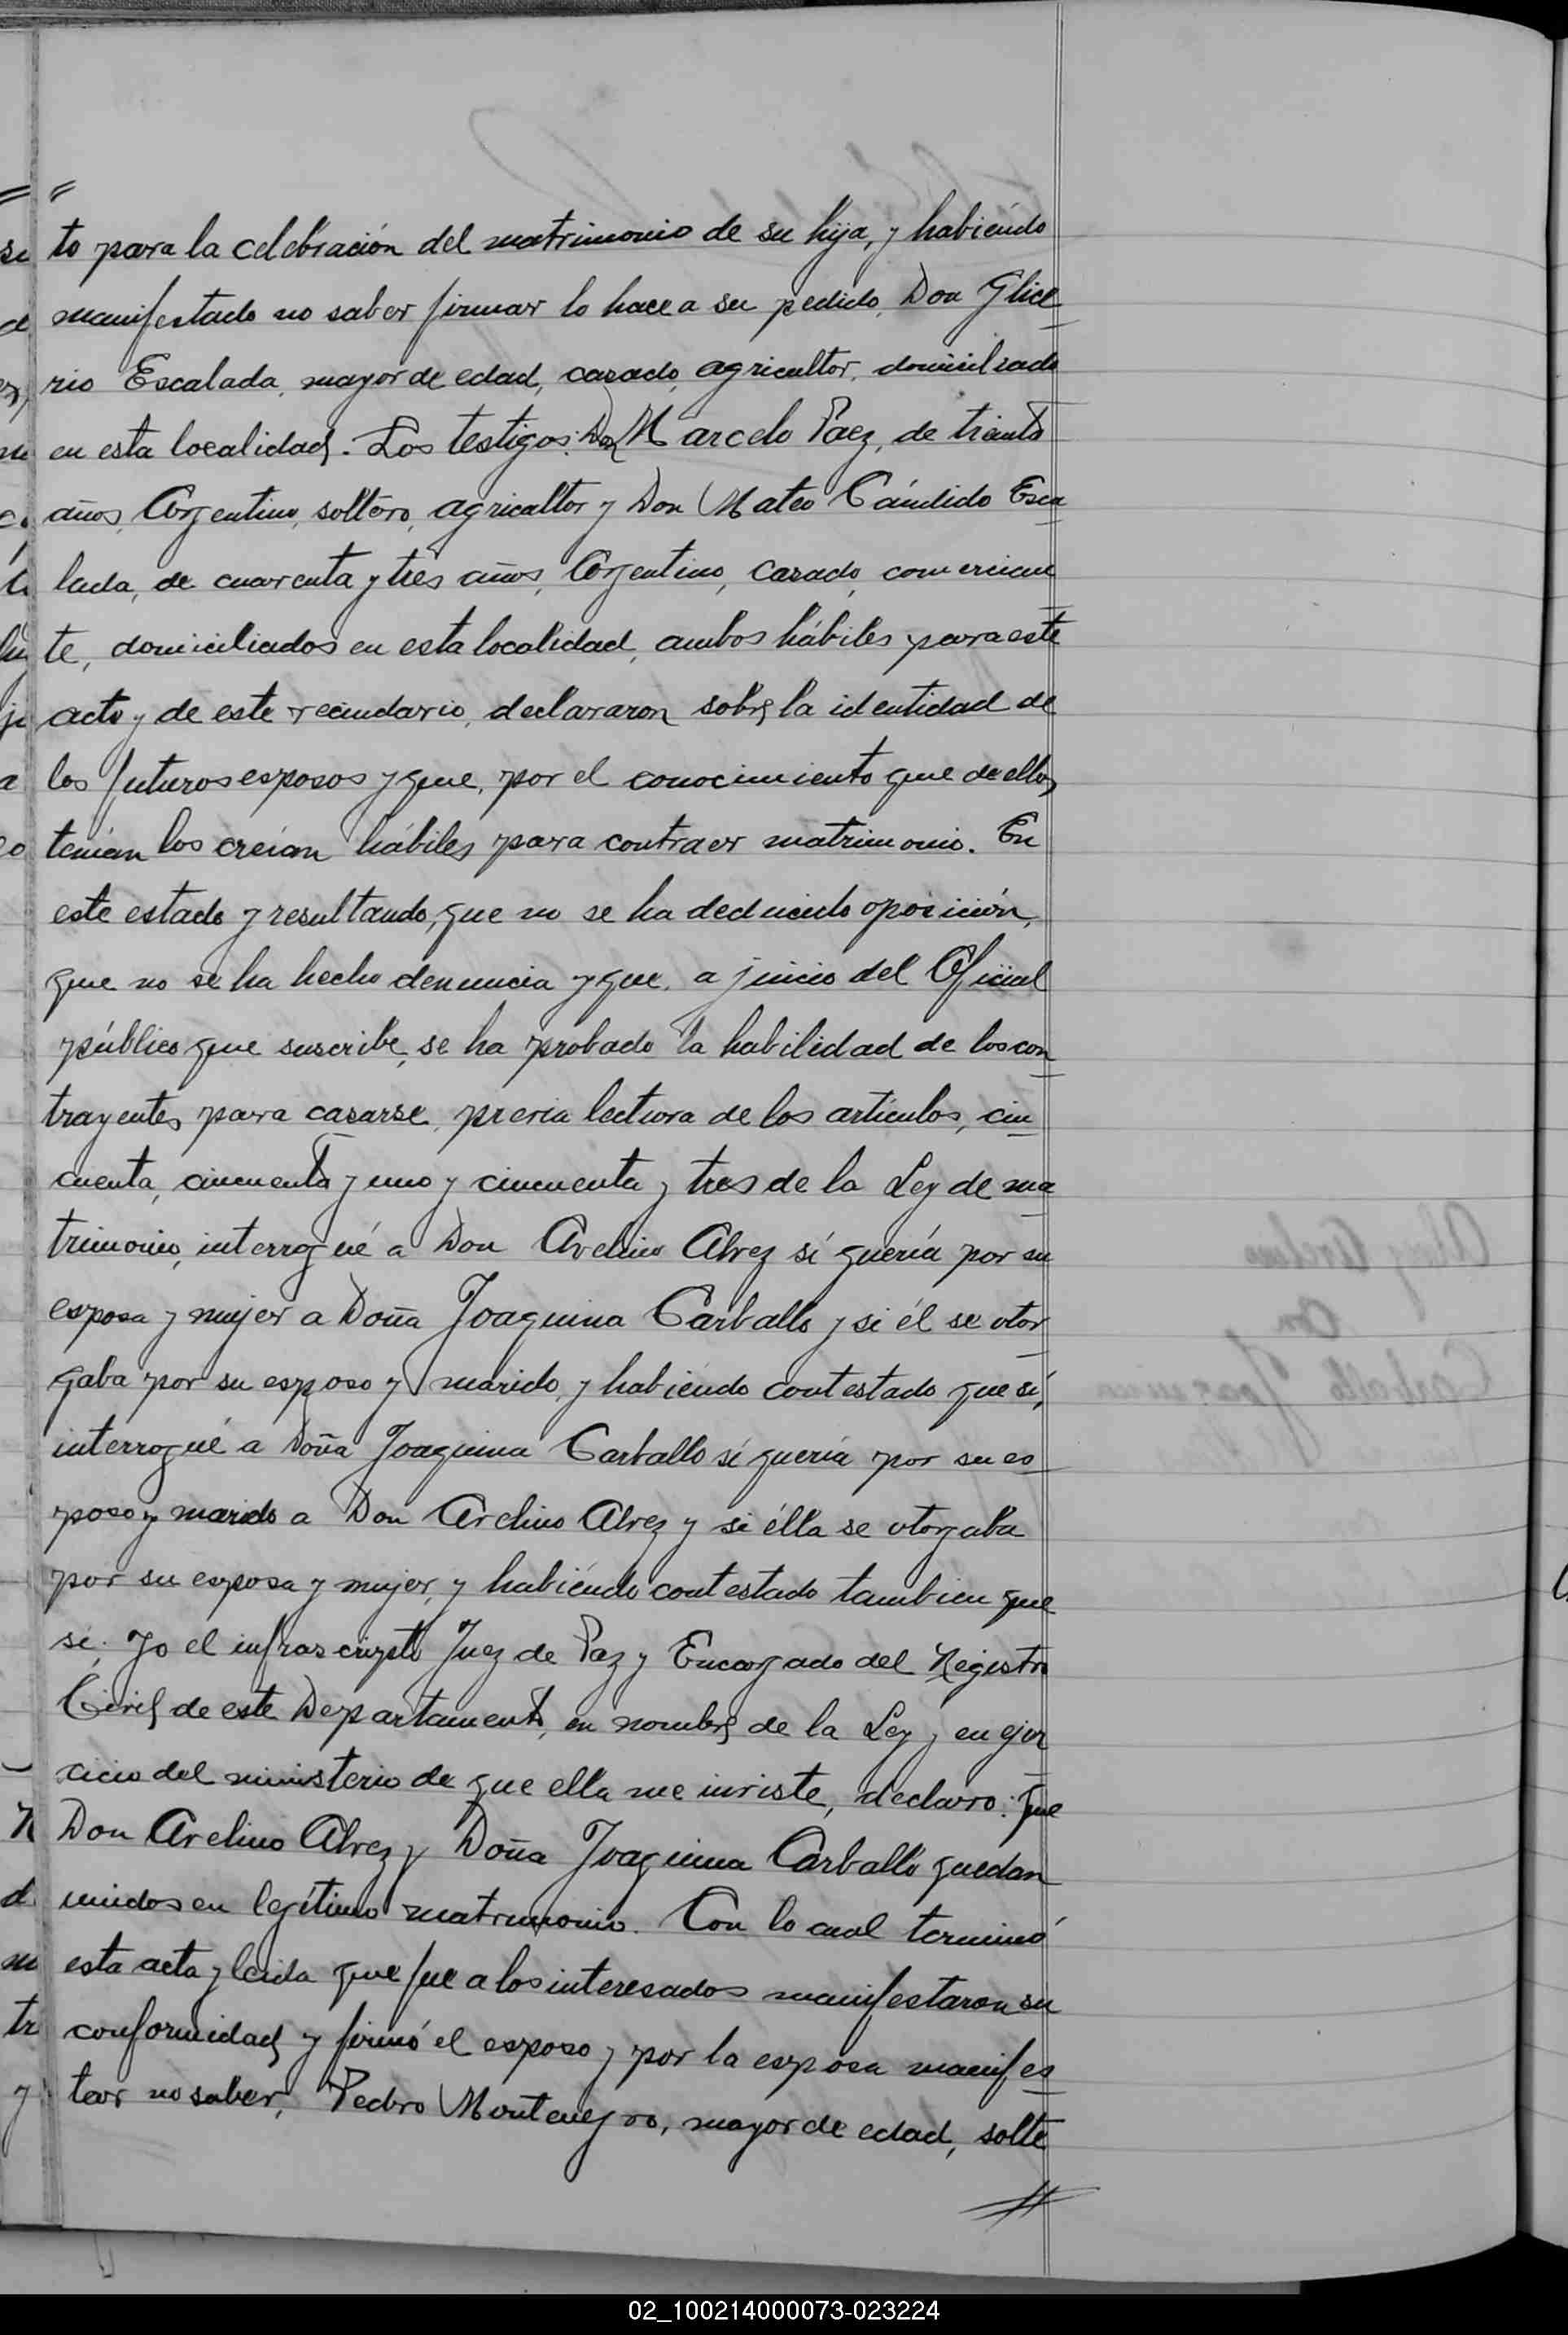 to para la celebración del matrimonio de su hija, y habiéndo
manifestado no saber firmar lo hace a su pedido, Don Glice
rio Escalada, mayor de edad, casado, agricultor, domiciliado
en esta localidad. Los testigos: Don Marcelo Paez, de treinta
años, Argentino, soltéro, agricultor y Don Mateo Cándido Esca
lada, de cuarenta y tres años, Argentino, casado, comercian
te, domiciliados en esta localidad, ambos hábiles para este
acto y de este vecindario, declararon sobre la identidad de
los futuros esposos y que, por el conocimiento que de ellos
tenían los creían hábiles para contraer matrimonio. En
este estado y resultando, que no se ha deducido oposición,
que no se ha hecho denuncia y que, a juicio del Oficial
público que suscribe, se ha probado la habilidad de los con
trayentes para casarse, previa lectura de los artículos, cin
cuenta, cincuenta y uno y cincuenta y tres de la Ley de ma
trimonio, interrogué a Don Avelino Alvez sí quería por su
esposa y mujer a Doña Joaquina Carballo y si él se otor
gaba por su esposo y marido, y habiéndo contestado que sí,
interrogué a Doña Joaquina Carballo sí quería por su es
poso y marido a Don Avelino Alvez y si élla se otorgaba
por su esposa y mujer, y habiéndo contestado tambien que
sí; Yo el infrascripto Juez de Paz y Encargado del Registro
Civil de este Departamento, en nombre de la Ley y en ejer
cicio del ministerio de que ella me inviste, declaro: que
Don Avelino Alvez y Doña Joaquina Carballo quedan
unidos en legítimo matrimonio. Con lo cual terminó
esta acta y leida que fue a los interesados manifestaron su
conformidad y firmó el esposo y por la esposa manifes
tar no saber, Pedro Montenegro, mayor de edad, solte
02_100214000073-023224